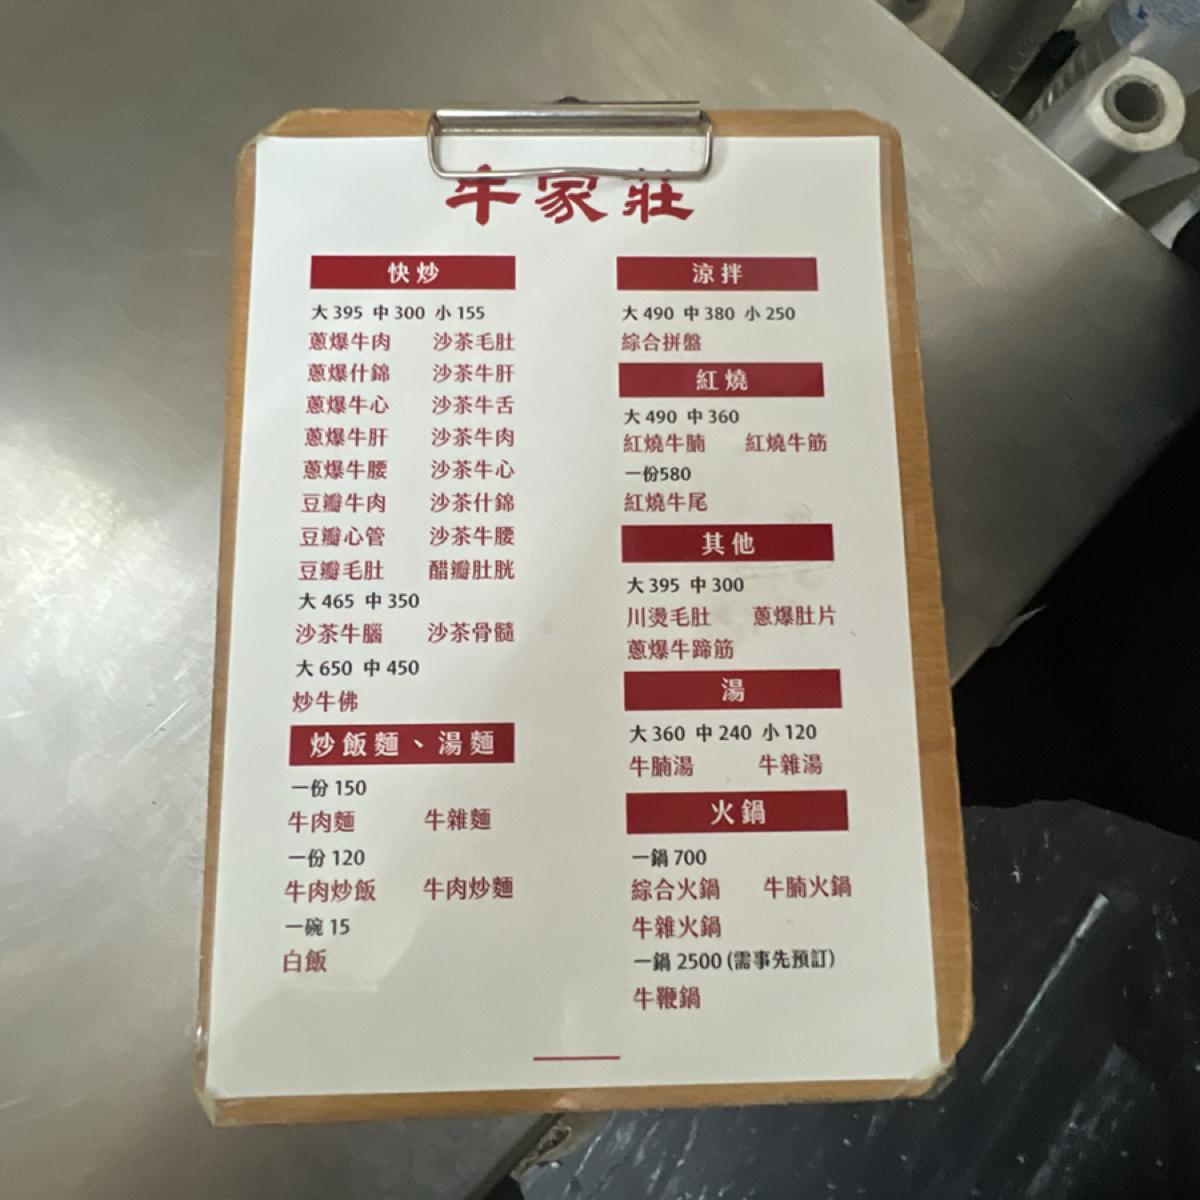 牛家莊
快炒
大 395 中 300 小 155
蔥爆牛肉 沙茶毛肚
蔥爆什錦 沙茶牛肝
蔥爆牛心 沙茶牛舌
蔥爆牛肝 沙茶牛肉
蔥爆牛腰 沙茶牛心
豆瓣牛肉 沙茶什錦
豆瓣心管 沙茶牛腰
豆瓣毛肚 醋瓣肚胱
大 465 中 350
沙茶牛腦 沙茶骨髓
大 650 中 450
炒牛佛
炒飯麵、湯麵
一份 150
牛肉麵 牛雜麵
一份 120
牛肉炒飯 牛肉炒麵
一碗 15
白飯
涼拌
大 490 中 380 小 250
綜合拼盤
紅燒
大 490 中 360
紅燒牛腩 紅燒牛筋
一份580
紅燒牛尾
其他
大 395 中 300
川燙毛肚 蔥爆肚片
蔥爆牛蹄筋
湯
大 360 中 240 小 120
牛腩湯 牛雜湯
火鍋
一鍋 700
綜合火鍋 牛腩火鍋
牛雜火鍋
一鍋 2500 (需事先預訂)
牛鞭鍋